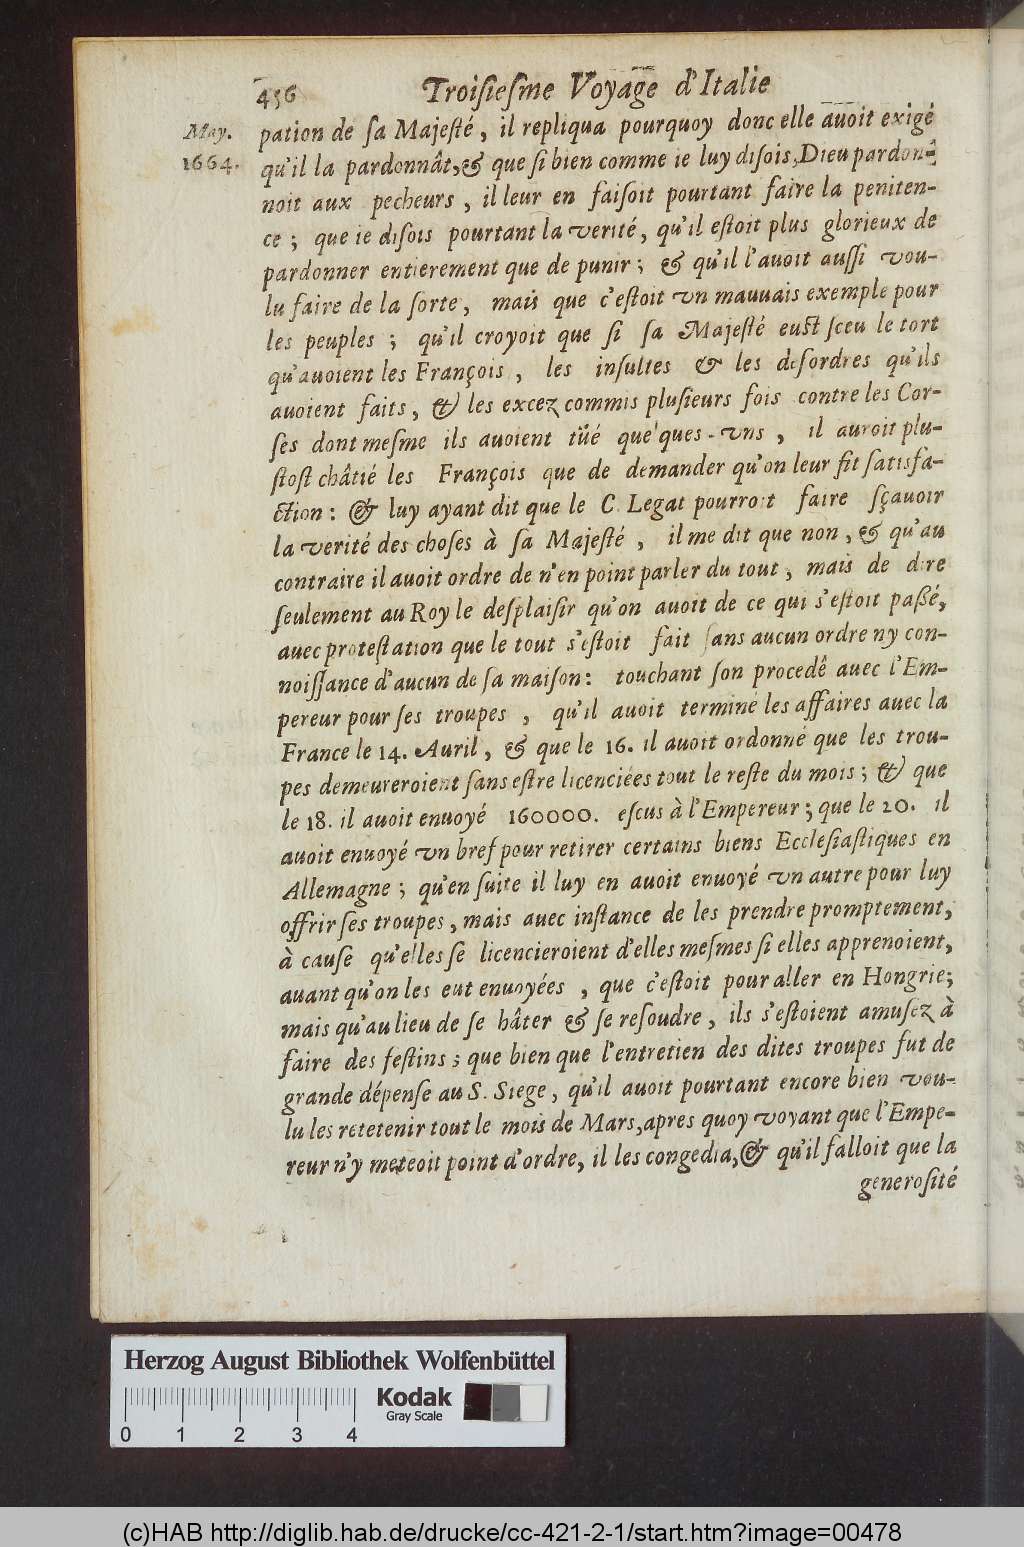 456 Troisiesme Voyage d'Italie
May.
1664.
pation de sa Majesté, il repliqua pourquoy donc elle avoit exigé
qu'il la pardonnât, & que si bien comme ie luy disois, Dieu pardon-
noit aux pecheurs, il leur en faisoit pourtant faire la peniten-
ce; que ie disois pourtant la verité, qu'il estoit plus glorieux de
pardonner entierement que de punir; & qu'il l'avoit aussi vou-
lu faire de la sorte, mais que c'estoit vn mauuais exemple pour
les peuples; qu'il croyoit que si sa Majesté eust sceu le tort
qu'auoient les François, les insultes & les desordres qu'ils
auoient faits, & les excez commis plusieurs fois contre les Cor-
ses dont mesme ils auoient tüé quelques-vns, il auroit plu-
stost châtié les François que de demander qu'on leur fit satisfa-
ction: & luy ayant dit que le C. Legat pourroit faire sçauoir
la verité des choses à sa Majesté, il me dit que non, & qu'au
contraire il auoit ordre de n'en point parler du tout, mais de dire
seulement au Roy le desplaisir qu'on auoit de ce qui s'estoit paßé,
auec protestation que le tout s'estoit fait sans aucun ordre ny con-
noissance d'aucun de sa maison: touchant son procedé auec l'Em-
pereur pour ses troupes, qu'il auoit terminé les affaires auec la
France le 14. Auril, & que le 16. il auoit ordonné que les trou-
pes demeureroient sans estre licenciées tout le reste du mois; & que
le 18. il auoit enuoyé 160000. escus à l'Empereur; que le 20. il
auoit enuoyé vn bref pour retirer certains biens Ecclesiastiques en
Allemagne; qu'en suite il luy en auoit enuoyé vn autre pour luy
offrir ses troupes, mais auec instance de les prendre promptement,
à cause qu'elles se licencieroient d'elles mesmes si elles apprenoient,
auant qu'on les eut enuoyées, que c'estoit pour aller en Hongrie;
mais qu'au lieu de se hâter & se resoudre, ils s'estoient amusez à
faire des festins; que bien que l'entretien des dites troupes fut de
grande dépense au S. Siege, qu'il auoit pourtant encore bien vou-
lu les retetenir tout le mois de Mars, apres quoy voyant que l'Empe-
reur n'y meteoit point d'ordre, il les congedia, & qu'il falloit que la
generosité
Herzog August Bibliothek Wolfenbüttel
Kodak
Gray Scale
0 1 2 3 4
(c)HAB http://diglib.hab.de/drucke/cc-421-2-1/start.htm?image=00478